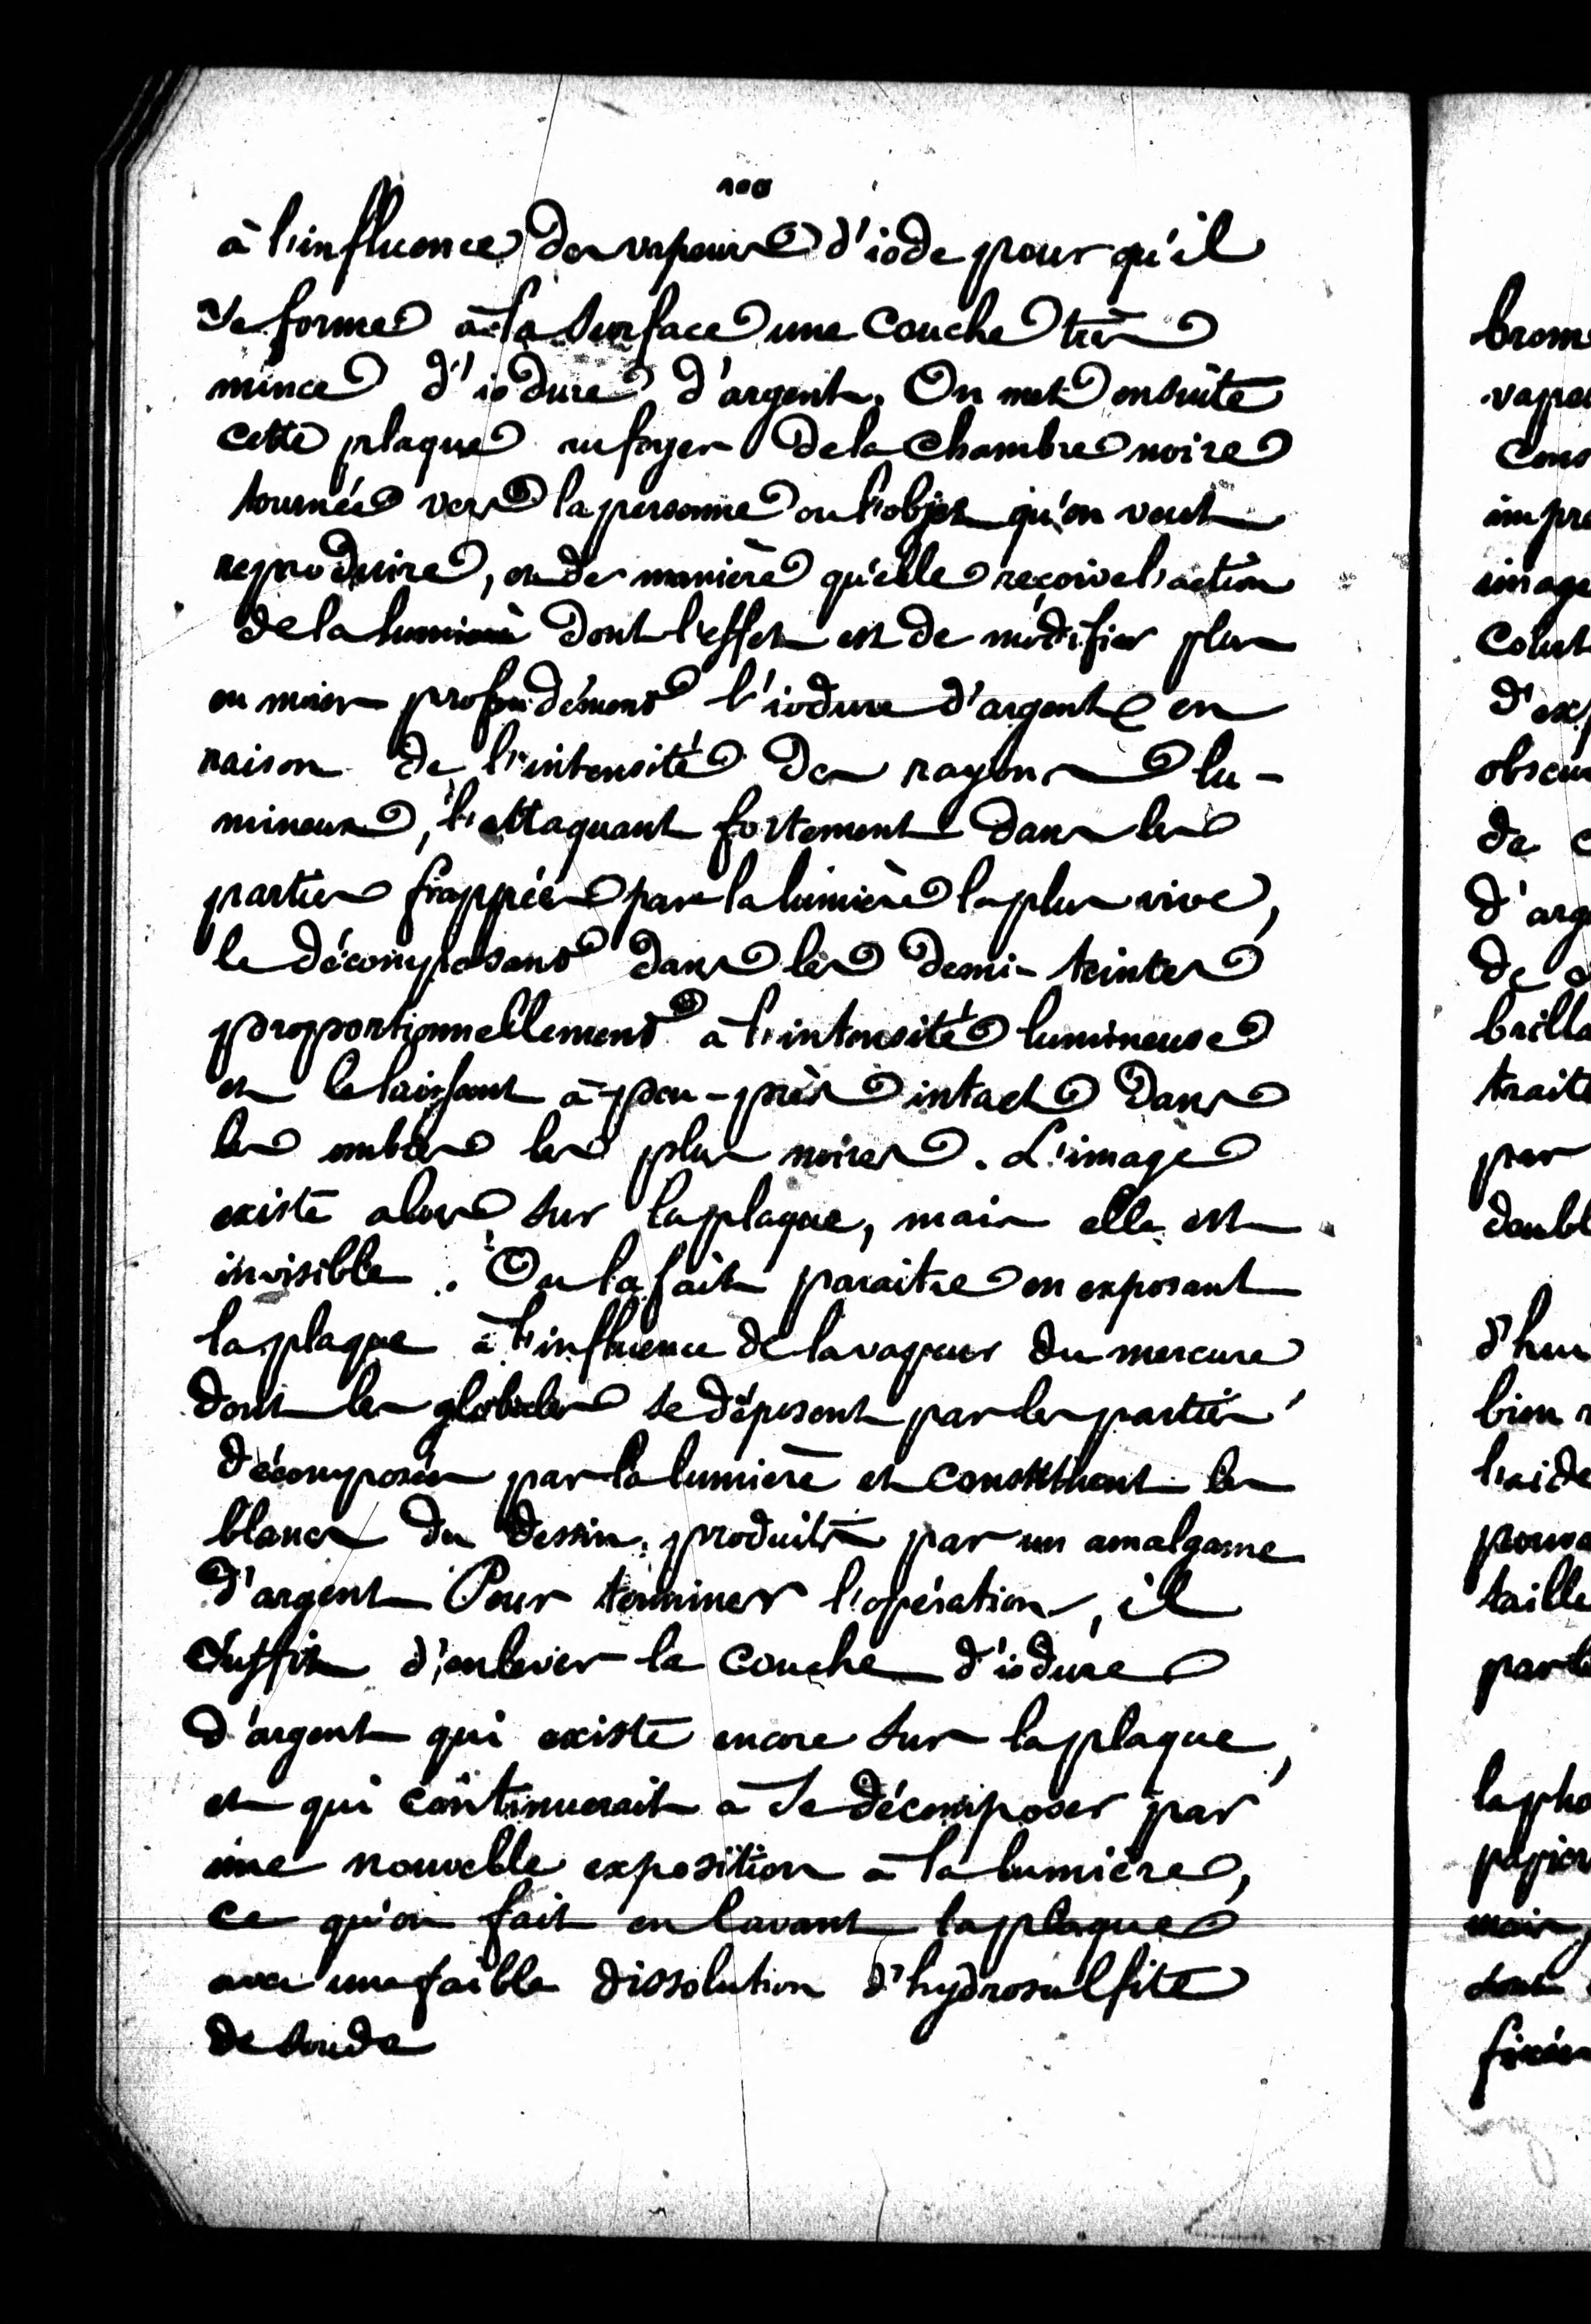 100
à l'influence des vapeurs d'iode pour qu'il
se forme à la surface une couche très
mince d'iodure d'argent. On met ensuite
cette plaque au foyer de la chambre noire
tournée vers la personne ou l'objet qu'on veut
reproduire, et de manière qu'elle reçoive l'action
de la lumière dont l'effet est de modifier plus
ou moins profondément l'iodure d'argent en
raison de l'intensité des rayons lu-
mineux, l'attaquant fortement dans les
parties frappées par la lumière la plus vive,
le décomposant dans les demi-teintes
proportionnellement à l'intensité lumineuse
et le laissant à-peu-près intact dans
les ombres les plus noires. L'image
existe alors sur la plaque, mais elle est
invisible. On la fait paraitre en exposant
la plaque à l'influence de la vapeur du mercure
dont les globules se déposent par les parties
décomposées par la lumière et constituent les
blancs du dessin, produits par un amalgame
d'argent Pour terminer l'opération, il
suffit d'enlever la couche d'iodure
d'argent qui existe encore sur la plaque,
et qui continuerait à se décomposer par
une nouvelle exposition à la lumière,
ce qu'on fait en lavant la plaque
avec une faible dissolution d'hydrosulfite
de soude
brom
vape
cons
impre
image
d'exp
obscu
de c
d'arg
brilla
traite
par
doubl
d'hui
bien
l'aide
pouva
taille
parti
la pho
papier
mais